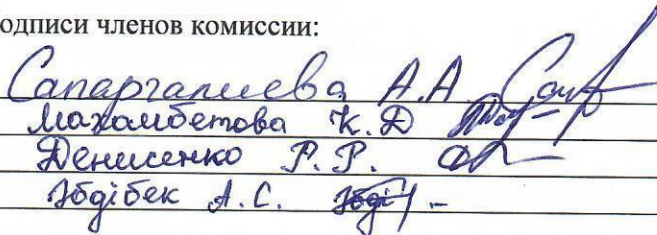 одписи членов комиссии:
Сапаргалиева А.А
Махамбетова К.Д
Денисенко Р.Р.
Әбдібек А.С.